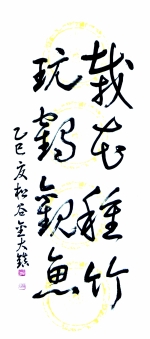 栽花種竹
玩鶴觀魚
乙巳夏松谷金大鎰